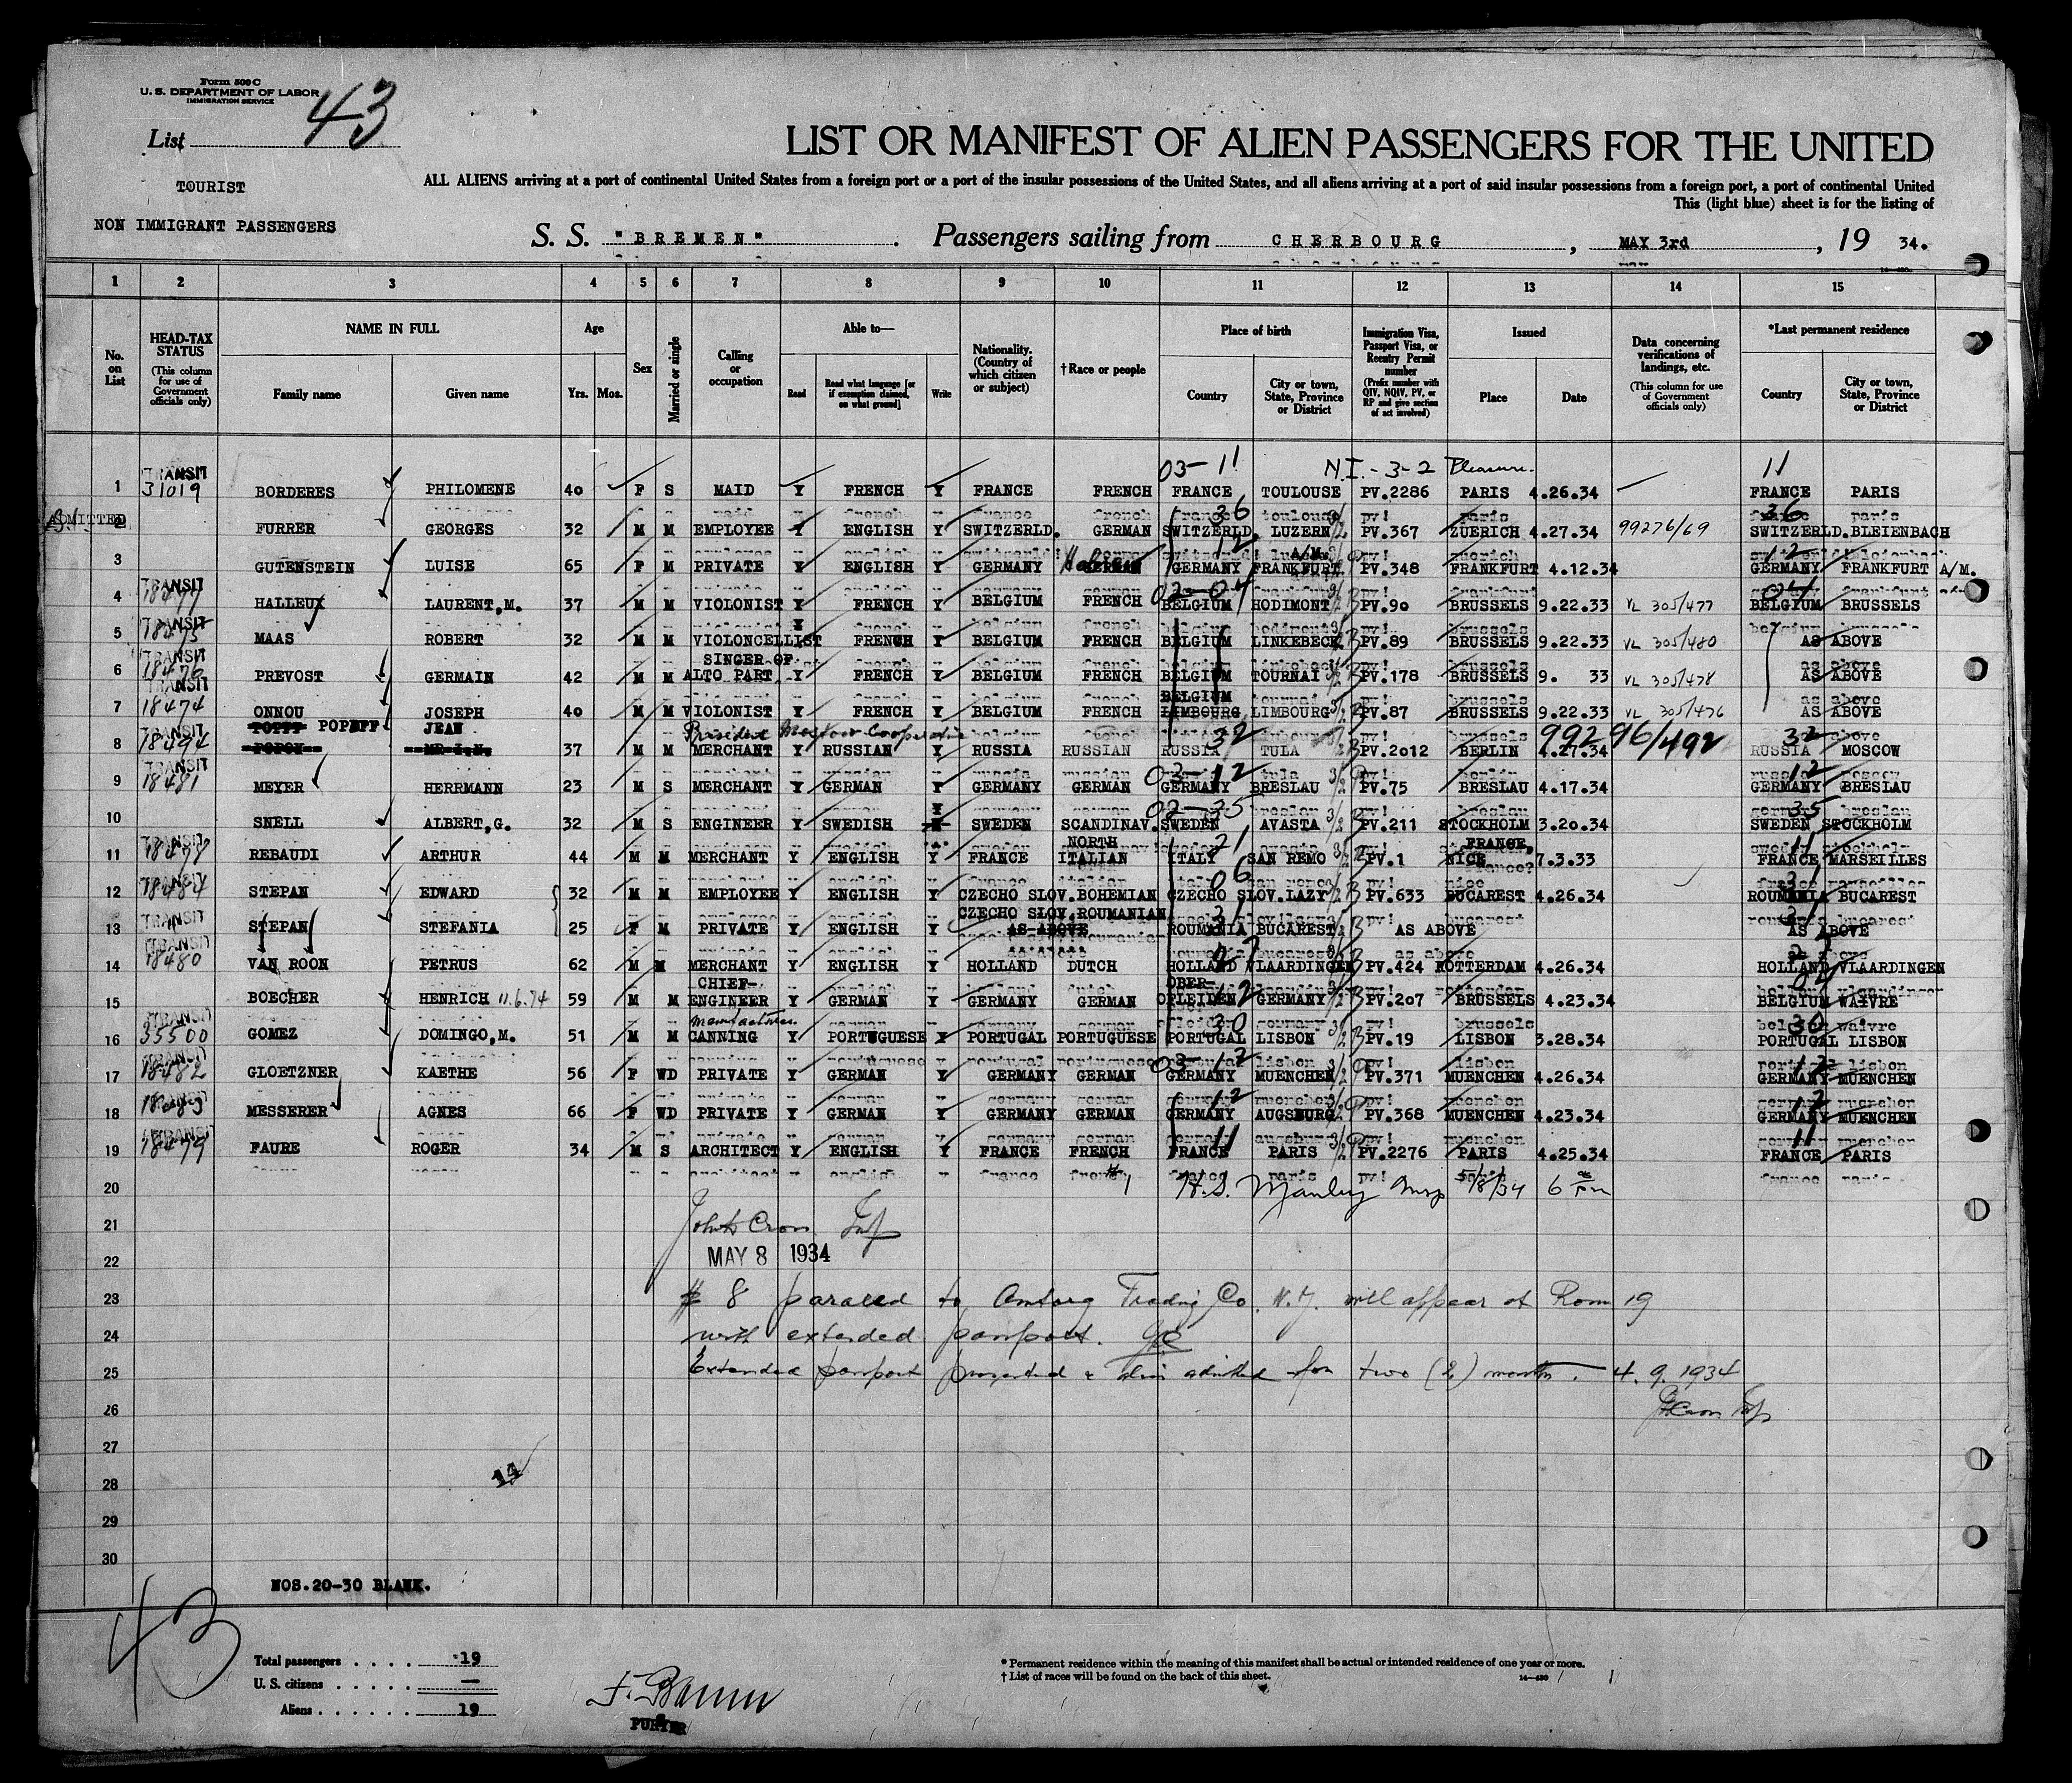 Form 500 C
U. S. DEPARTMENT OF LABOR
IMMIGRATION SERVICE
List 43
LIST OR MANIFEST OF ALIEN PASSENGERS FOR THE UNITED
TOURIST
ALL ALIENS arriving at a port of continental United States from a foreign port or a port of the insular possessions of the United States, and all aliens arriving at a port of said insular possessions from a foreign port, a port of continental United
This (light blue) sheet is for the listing of
NON IMMIGRANT PASSENGERS
S. S. "BREMEN" . Passengers sailing from CHERBOURG , MAY 3rd , 19 34.
1 2 3 4 5 6 7 8 9 10 11 12 13 14 15
No. on List
HEAD-TAX STATUS (This column for use of Government officials only)
NAME IN FULL Family name Given name
Age Yrs. Mos.
Sex
Married or single
Calling or occupation
Able to— Read Read what language [or if exemption claimed, on what ground] Write
Nationality. (Country of which citizen or subject)
†Race or people
Place of birth Country City or town, State, Province or District
Immigration Visa, Passport Visa, or Reentry Permit number (Prefix number with QIV, NQIV, PV, or RP and give section of act involved)
Issued Place Date
Data concerning verifications of landings, etc. (This column for use of Government officials only)
*Last permanent residence Country City or town, State, Province or District
03-11 N.I.-3-2 Pleasure 11
1 TRANSIT 31019 BORDERES PHILOMENE 40 F S MAID Y FRENCH Y FRANCE FRENCH FRANCE TOULOUSE PV.2286 PARIS 4.26.34 FRANCE PARIS
ADMITTED 2 FURRER GEORGES 32 M M EMPLOYEE Y ENGLISH Y SWITZERLD. GERMAN 36 SWITZERLD. LUZERN PV.367 ZUERICH 4.27.34 99276/69 36 SWITZERLD.BLEIENBACH
3 GUTENSTEIN LUISE 65 F M PRIVATE Y ENGLISH Y GERMANY Hebrew 12 GERMANY FRANKFURT A/M. PV.348 FRANKFURT 4.12.34 12 GERMANY FRANKFURT A/M.
4 TRANSIT 18477 HALLEUX LAURENT,M. 37 M M VIOLONIST Y FRENCH Y BELGIUM FRENCH 02-04 BELGIUM HODIMONT PV.90 BRUSSELS 9.22.33 VL 305/477 04 BELGIUM BRUSSELS
5 TRANSIT 18475 MAAS ROBERT 32 M M VIOLONCELLIST Y FRENCH Y BELGIUM FRENCH BELGIUM LINKEBECK PV.89 BRUSSELS 9.22.33 VL 305/480 AS ABOVE
6 TRANSIT 18476 PREVOST GERMAIN 42 M M SINGER OF ALTO PART Y FRENCH Y BELGIUM FRENCH BELGIUM TOURNAI PV.178 BRUSSELS 9. 33 VL 305/478 AS ABOVE
7 TRANSIT 18474 ONNOU JOSEPH 40 M M VIOLONIST Y FRENCH Y BELGIUM FRENCH BELGIUM LIMBOURG LIMBOURG PV.87 BRUSSELS 9.22.33 VL 305/476 AS ABOVE
8 TRANSIT 18494 POPOFF JEAN 37 M M President Moscow Cooperative MERCHANT Y RUSSIAN Y RUSSIA RUSSIAN 32 RUSSIA TULA PV.2012 BERLIN 4.27.34 99296/492 32 RUSSIA MOSCOW
9 TRANSIT 18481 MEYER HERRMANN 23 M S MERCHANT Y GERMAN Y GERMANY GERMAN 03-12 GERMANY BRESLAU PV.75 BRESLAU 4.17.34 12 GERMANY BRESLAU
10 SNELL ALBERT,G. 32 M S ENGINEER Y SWEDISH Y SWEDEN SCANDINAV. 02-35 SWEDEN AVASTA PV.211 STOCKHOLM 3.20.34 35 SWEDEN STOCKHOLM
11 TRANSIT 18478 REBAUDI ARTHUR 44 M M MERCHANT Y ENGLISH Y FRANCE NORTH ITALIAN 21 ITALY SAN REMO PV.1 NICE FRANCE, 7.3.33 11 FRANCE MARSEILLES
12 TRANSIT 18484 STEPAN EDWARD 32 M M EMPLOYEE Y ENGLISH Y CZECHO SLOV. BOHEMIAN 06 CZECHO SLOV. LAZY PV.633 BUCAREST 4.26.34 31 ROUMANIA BUCAREST
13 TRANSIT " STEPAN STEFANIA 25 F M PRIVATE Y ENGLISH Y CZECHO SLOV. AS ABOVE ROUMANIAN 31 ROUMANIA BUCAREST AS ABOVE 31 AS ABOVE
14 TRANSIT 18480 VAN ROON PETRUS 62 M M MERCHANT Y ENGLISH Y HOLLAND DUTCH 27 HOLLAND VLAARDINGEN PV.424 ROTTERDAM 4.26.34 27 HOLLAND VLAARDINGEN
15 BOECHER HENRICH 11.6.74 59 M M CHIEF-ENGINEER Y GERMAN Y GERMANY GERMAN OBER-OFLEIDEN 12 GERMANY PV.207 BRUSSELS 4.23.34 04 BELGIUM WAIVRE
16 TRANSIT 35500 GOMEZ DOMINGO,M. 51 M M manufacturer CANNING Y PORTUGUESE Y PORTUGAL PORTUGUESE 30 PORTUGAL LISBON PV.19 LISBON 3.28.34 30 PORTUGAL LISBON
17 TRANSIT 18482 GLOETZNER KAETHE 56 F WD PRIVATE Y GERMAN Y GERMANY GERMAN 03-12 GERMANY MUENCHEN PV.371 MUENCHEN 4.26.34 12 GERMANY MUENCHEN
18 18483 MESSERER AGNES 66 F WD PRIVATE Y GERMAN Y GERMANY GERMAN 12 GERMANY AUGSBURG PV.368 MUENCHEN 4.23.34 12 GERMANY MUENCHEN
19 TRANSIT 18479 FAURE ROGER 34 M S ARCHITECT Y ENGLISH Y FRANCE FRENCH 11 FRANCE PARIS PV.2276 PARIS 4.25.34 11 FRANCE PARIS
20 H.S. Manley Insp 5/8/34 6 PM
21 John Cron Insp
22 MAY 8 1934
23 # 8 paroled to Amtorg Trading Co. N.Y. will appear at Room 19
24 with extended passport.
25 Extended passport presented & alien admitted for two (2) months. 4.9.1934
26 JCron Insp
27
28 14
29
30
NOS.20-30 BLANK.
43
Total passengers . . . . 19
U. S. citizens . . . . . —
Aliens . . . . . . 19
PURSER
* Permanent residence within the meaning of this manifest shall be actual or intended residence of one year or more.
† List of races will be found on the back of this sheet.
14—430